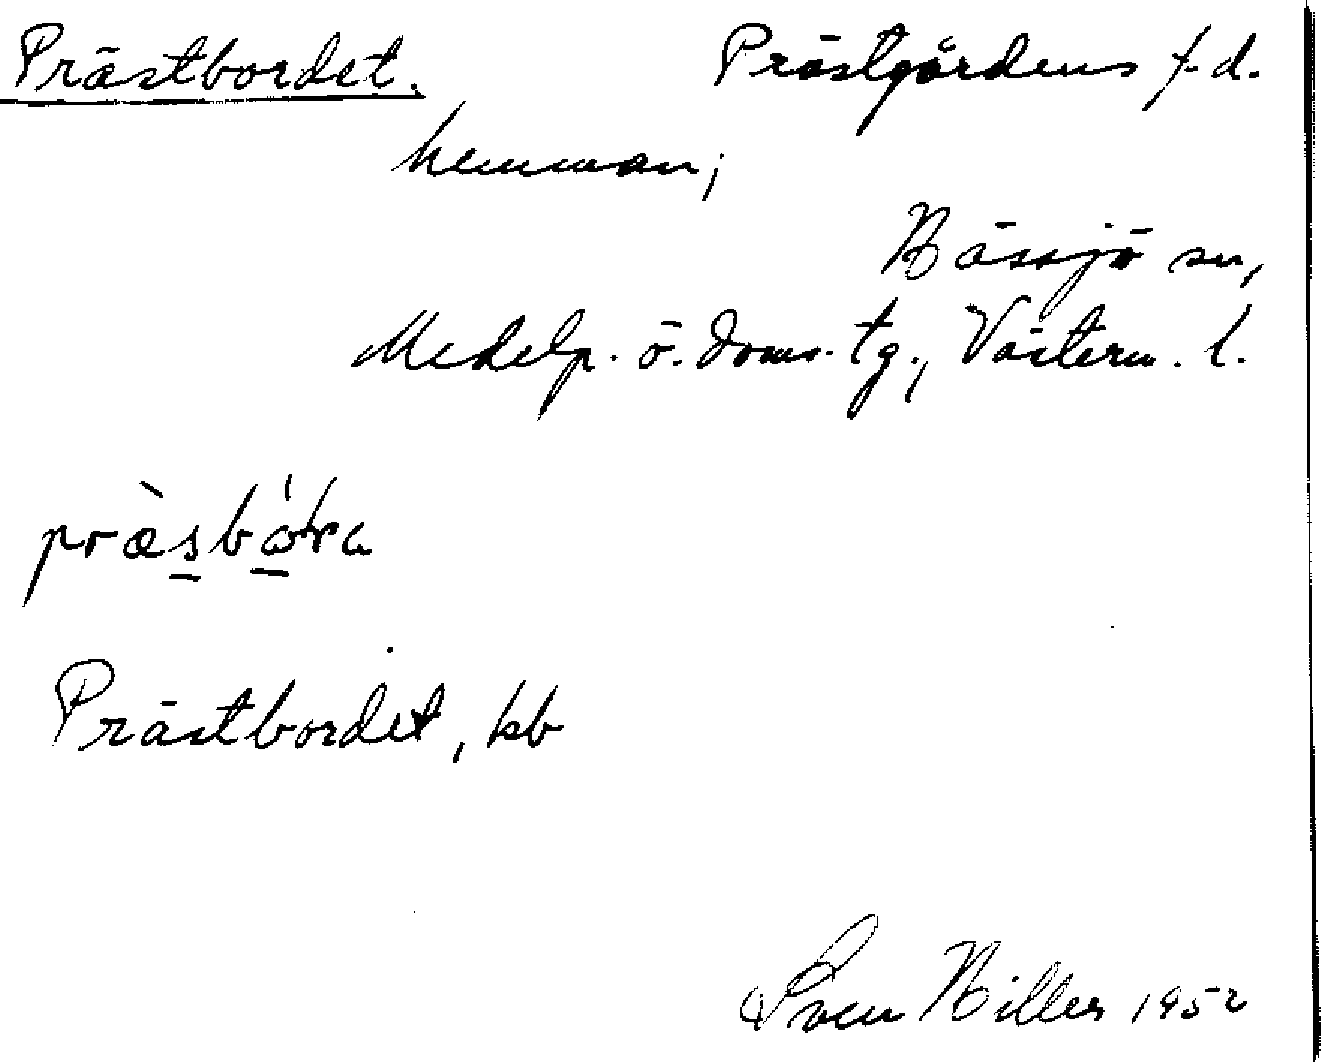 Prästbordet. Prästgårdens f.d.
hemman;
Hässjö sn,
Medelp. ö. doms. tg., Västern. l.
Prästbordet, kb
Sven Hiller 1952